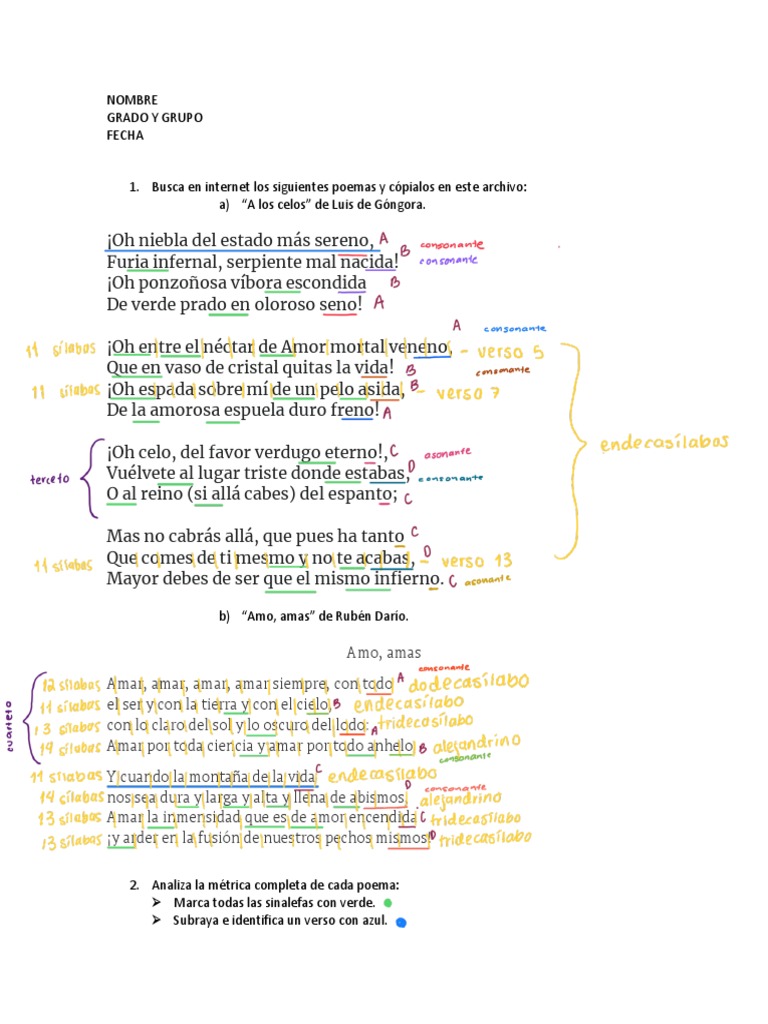 NOMBRE
GRADO Y GRUPO
FECHA
1. Busca en internet los siguientes poemas y cópialos en este archivo:
a) “A los celos” de Luis de Góngora.
¡Oh niebla del estado más sereno, A consonante
Furia infernal, serpiente mal nacida! B consonante
¡Oh ponzoñosa víbora escondida B
De verde prado en oloroso seno! A
11 sílabas ¡Oh entre el néctar de Amor mortal veneno, A consonante - verso 5
Que en vaso de cristal quitas la vida! B consonante
11 sílabas ¡Oh espada sobre mí de un pelo asida, B - verso 7
De la amorosa espuela duro freno! A
endecasílabos
¡Oh celo, del favor verdugo eterno!, C asonante
terceto Vuélvete al lugar triste donde estabas, D consonante
O al reino (si allá cabes) del espanto; C
Mas no cabrás allá, que pues ha tanto C
11 sílabas Que comes de ti mesmo y no te acabas, D - verso 13
Mayor debes de ser que el mismo infierno. C asonante
b) “Amo, amas” de Rubén Darío.
Amo, amas
cuarteto
12 sílabas Amar, amar, amar, amar siempre, con todo A consonante dodecasílabo
11 sílabas el ser y con la tierra y con el cielo, B endecasílabo
13 sílabas con lo claro del sol y lo oscuro del lodo: A tridecasílabo
14 sílabas Amar por toda ciencia y amar por todo anhelo B alejandrino
consonante
11 sílabas Y cuando la montaña de la vida C endecasílabo
14 sílabas nos sea dura y larga y alta y llena de abismos, D consonante alejandrino
13 sílabas Amar la inmensidad que es de amor encendida C tridecasílabo
13 sílabas ¡y arder en la fusión de nuestros pechos mismos! D tridecasílabo
2. Analiza la métrica completa de cada poema:
➢ Marca todas las sinalefas con verde.
➢ Subraya e identifica un verso con azul.